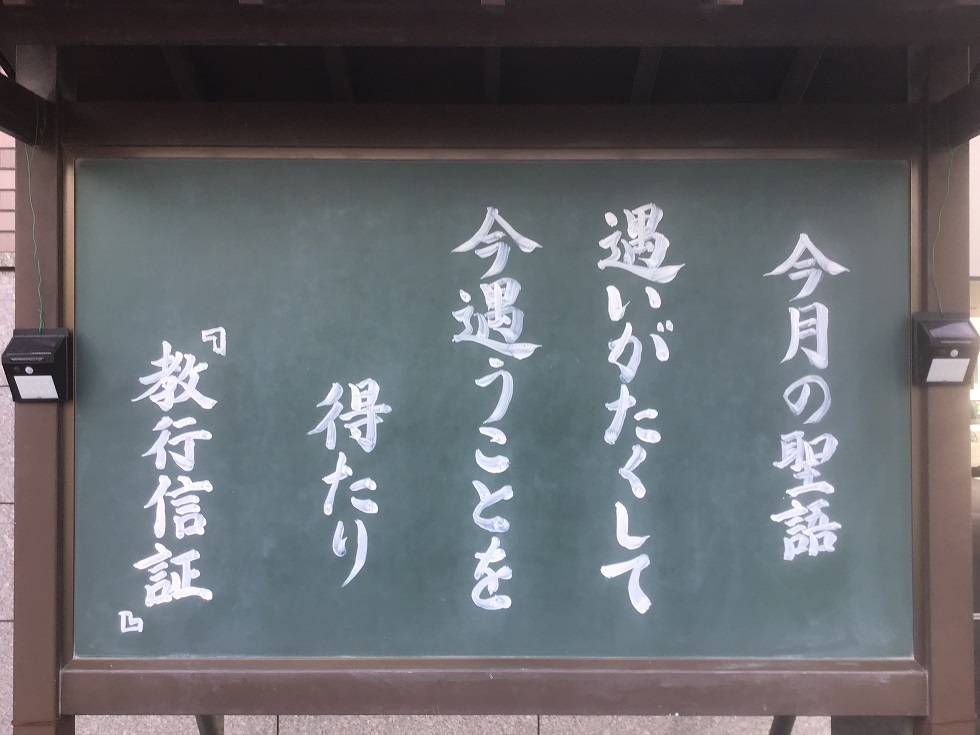 今月の聖語
遇いがたくして
今遇うことを
得たり
『教行信証』